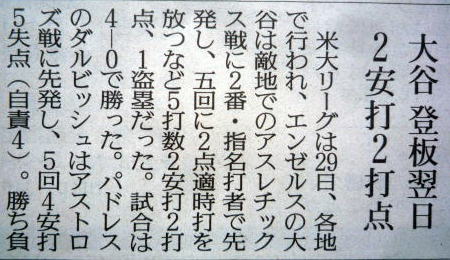 大谷 登板翌日
２安打２打点
米大リーグは29日、各地
で行われ、エンゼルスの大
谷は敵地でのアスレチック
ス戦に２番・指名打者で先
発し、五回に２点適時打を
放つなど５打数２安打２打
点、１盗塁だった。試合は
４―０で勝った。パドレス
のダルビッシュはアストロ
ズ戦に先発し、５回４安打
５失点（自責４）。勝ち負